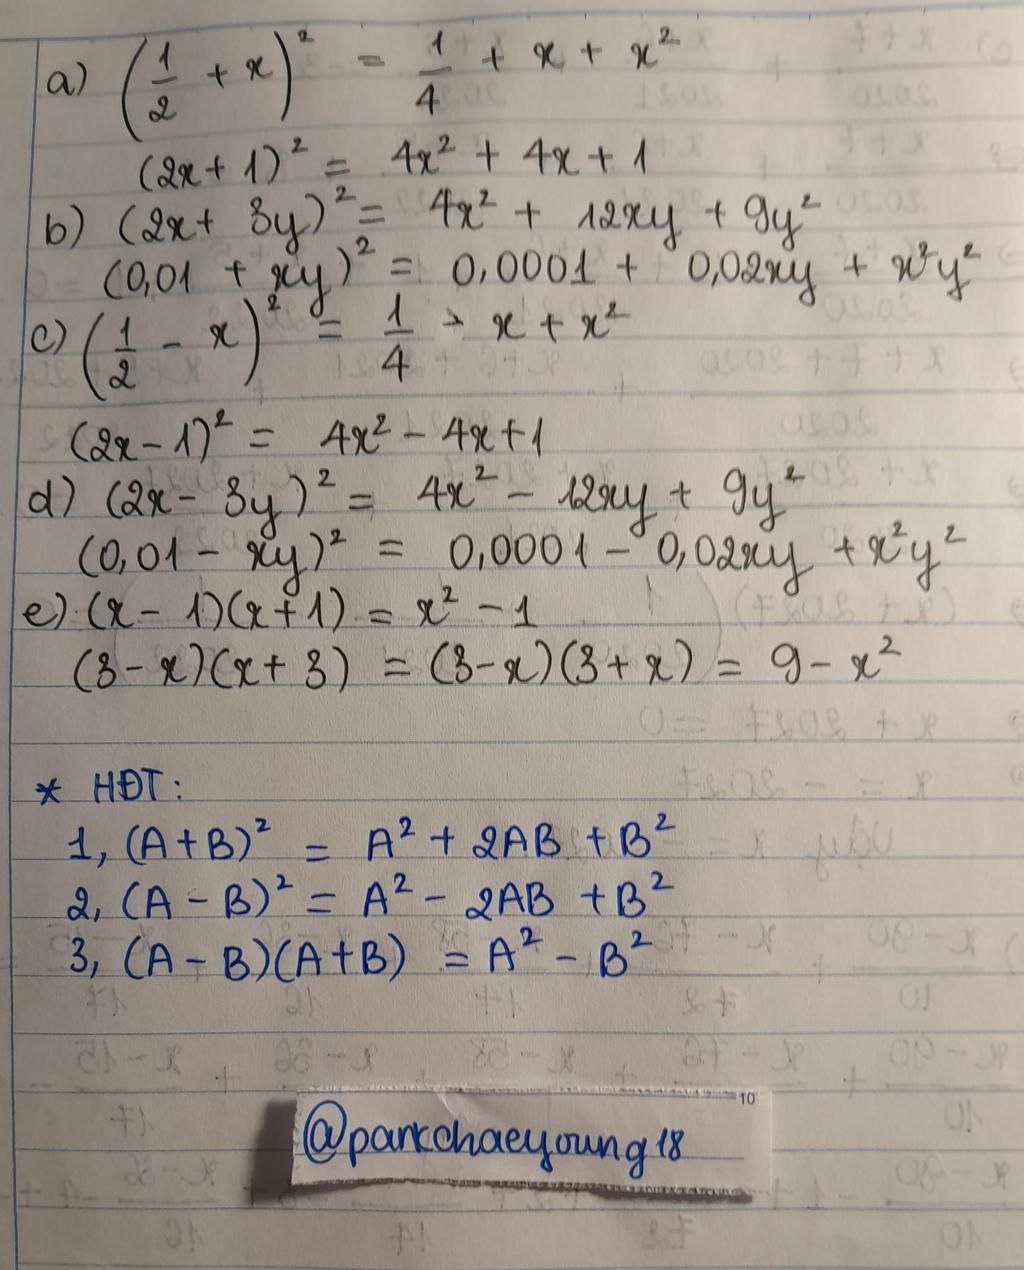 a) (1/2 + x)² = 1/4 + x + x²
(2x + 1)² = 4x² + 4x + 1
b) (2x + 3y)² = 4x² + 12xy + 9y²
(0,01 + xy)² = 0,0001 + 0,02xy + x²y²
c) (1/2 - x)² = 1/4 - x + x²
(2x - 1)² = 4x² - 4x + 1
d) (2x - 3y)² = 4x² - 12xy + 9y²
(0,01 - xy)² = 0,0001 - 0,02xy + x²y²
e) (x - 1)(x + 1) = x² - 1
(3 - x)(x + 3) = (3 - x)(3 + x) = 9 - x²
* HĐT:
1, (A + B)² = A² + 2AB + B²
2, (A - B)² = A² - 2AB + B²
3, (A - B)(A + B) = A² - B²
10
@parkchaeyoung18